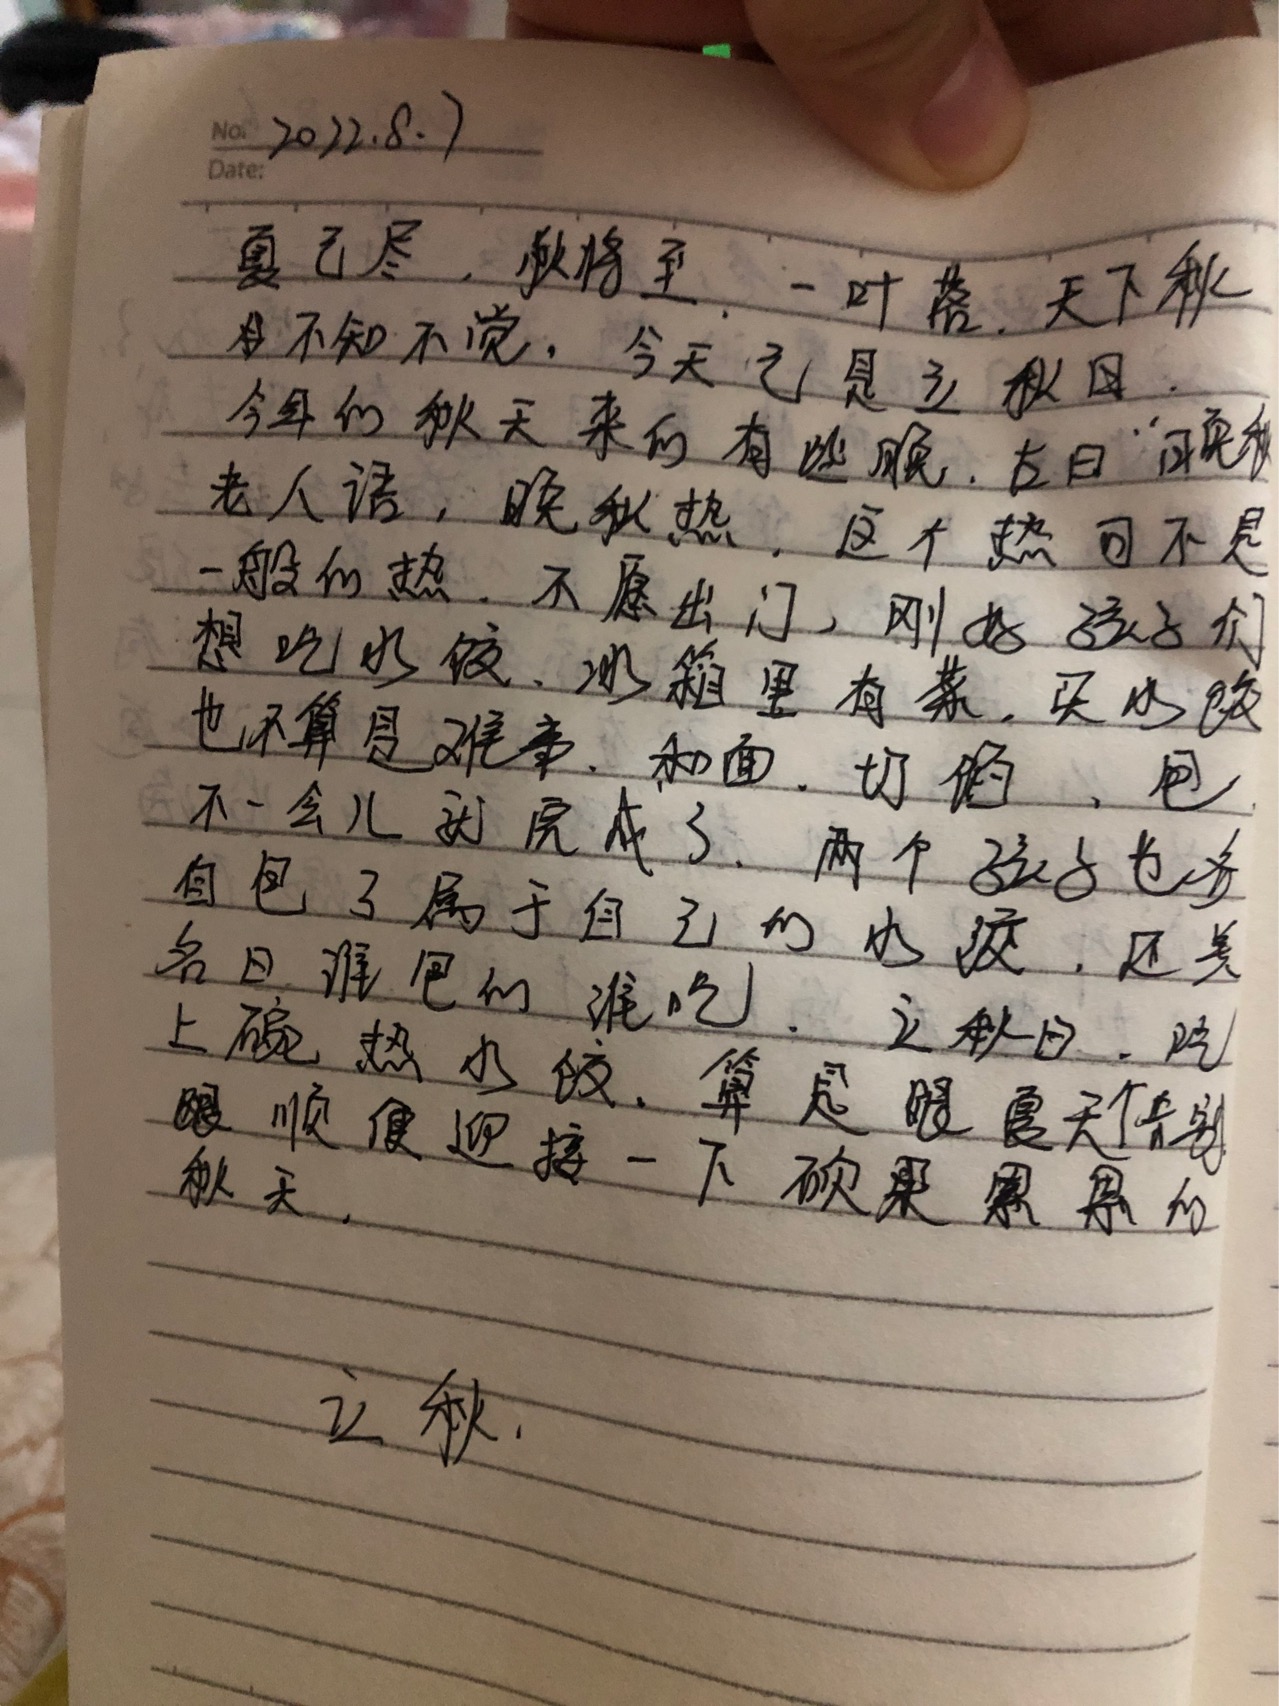 No. 2022.8.7
Date:
夏已尽，秋将至，一叶落，天下秋
不知不觉，今天已是立秋日．
今年的秋天来的有些晚．古曰“
老人语，晚秋热．这个热可不是
一般的热．不愿出门，刚好孩子们
想吃水饺．冰箱里有菜．买水饺
也不算是难事．和面．切馅、包．
不一会儿就完成了．两个孩子也各
自包了属于自己的水饺．还美
名曰谁包的谁吃．立秋日．吃
上碗热水饺．算是跟夏天个告别
跟顺便迎接一下硕果累累的
秋天．
立秋．